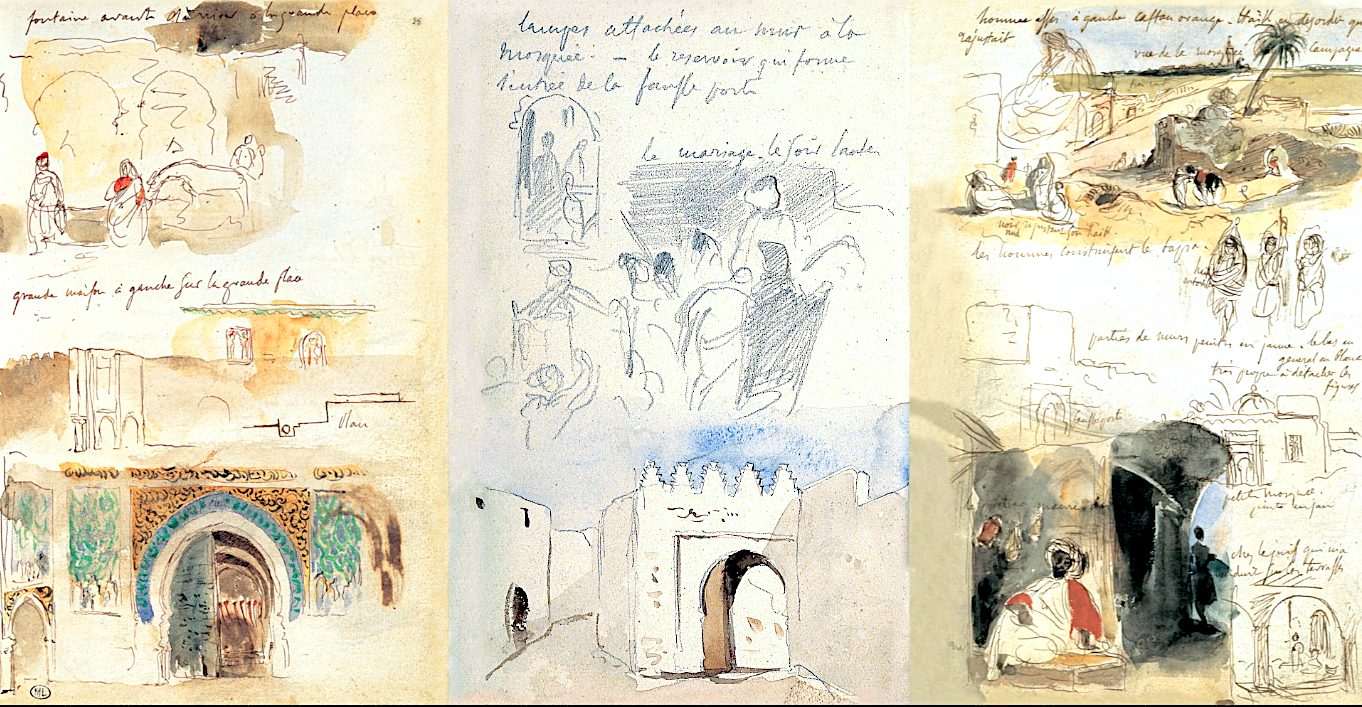 fontaine avant d'arriver à la grande place
25
grande maison à gauche sur la grande place
Plan
ML
lampes attachées au mur à la
Mosquée. — le reservoir qui forme
l'entrée de la fausse porte
le mariage. le soir
hommes assis à gauche caftan orange. Haïk en désordre
rajustait
vue de la mosquée
campagne
noir rajustant son haïk
nud
les hommes construisent le tapia.
parties de murs peintes en jaune. le bas en
general en blanc
très propre à détacher les
figures
fausse porte
petite Mosquée.
peinte en jaune
chez le juif qui m'a
conduit sur les terrasses